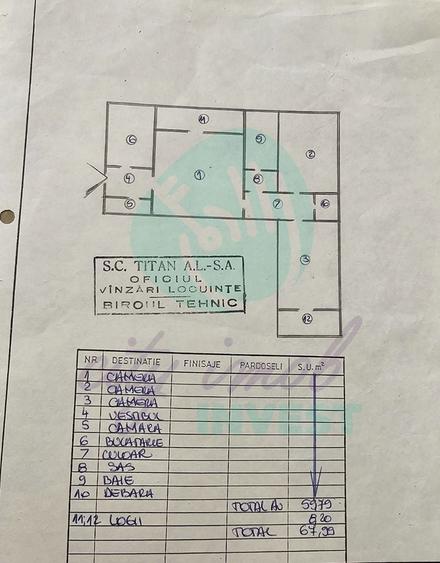 11
6
9
2
4
1
8
5
7
10
3
12
S.C. TITAN A.L.-S.A.
OFICIUL
VÎNZĂRI LOCUINȚE
BIROUL TEHNIC
NR DESTINATIE FINISAJE PARDOSELI S.U. m²
1 CAMERA
2 CAMERA
3 CAMERA
4 VESTIBUL
5 CAMARA
6 BUCATARIE
7 CULOAR
8 SAS
9 BAIE
10 DEBARA
TOTAL AU 59,79
11,12 LOGII 8,20
TOTAL 67,99
city imob
INVEST